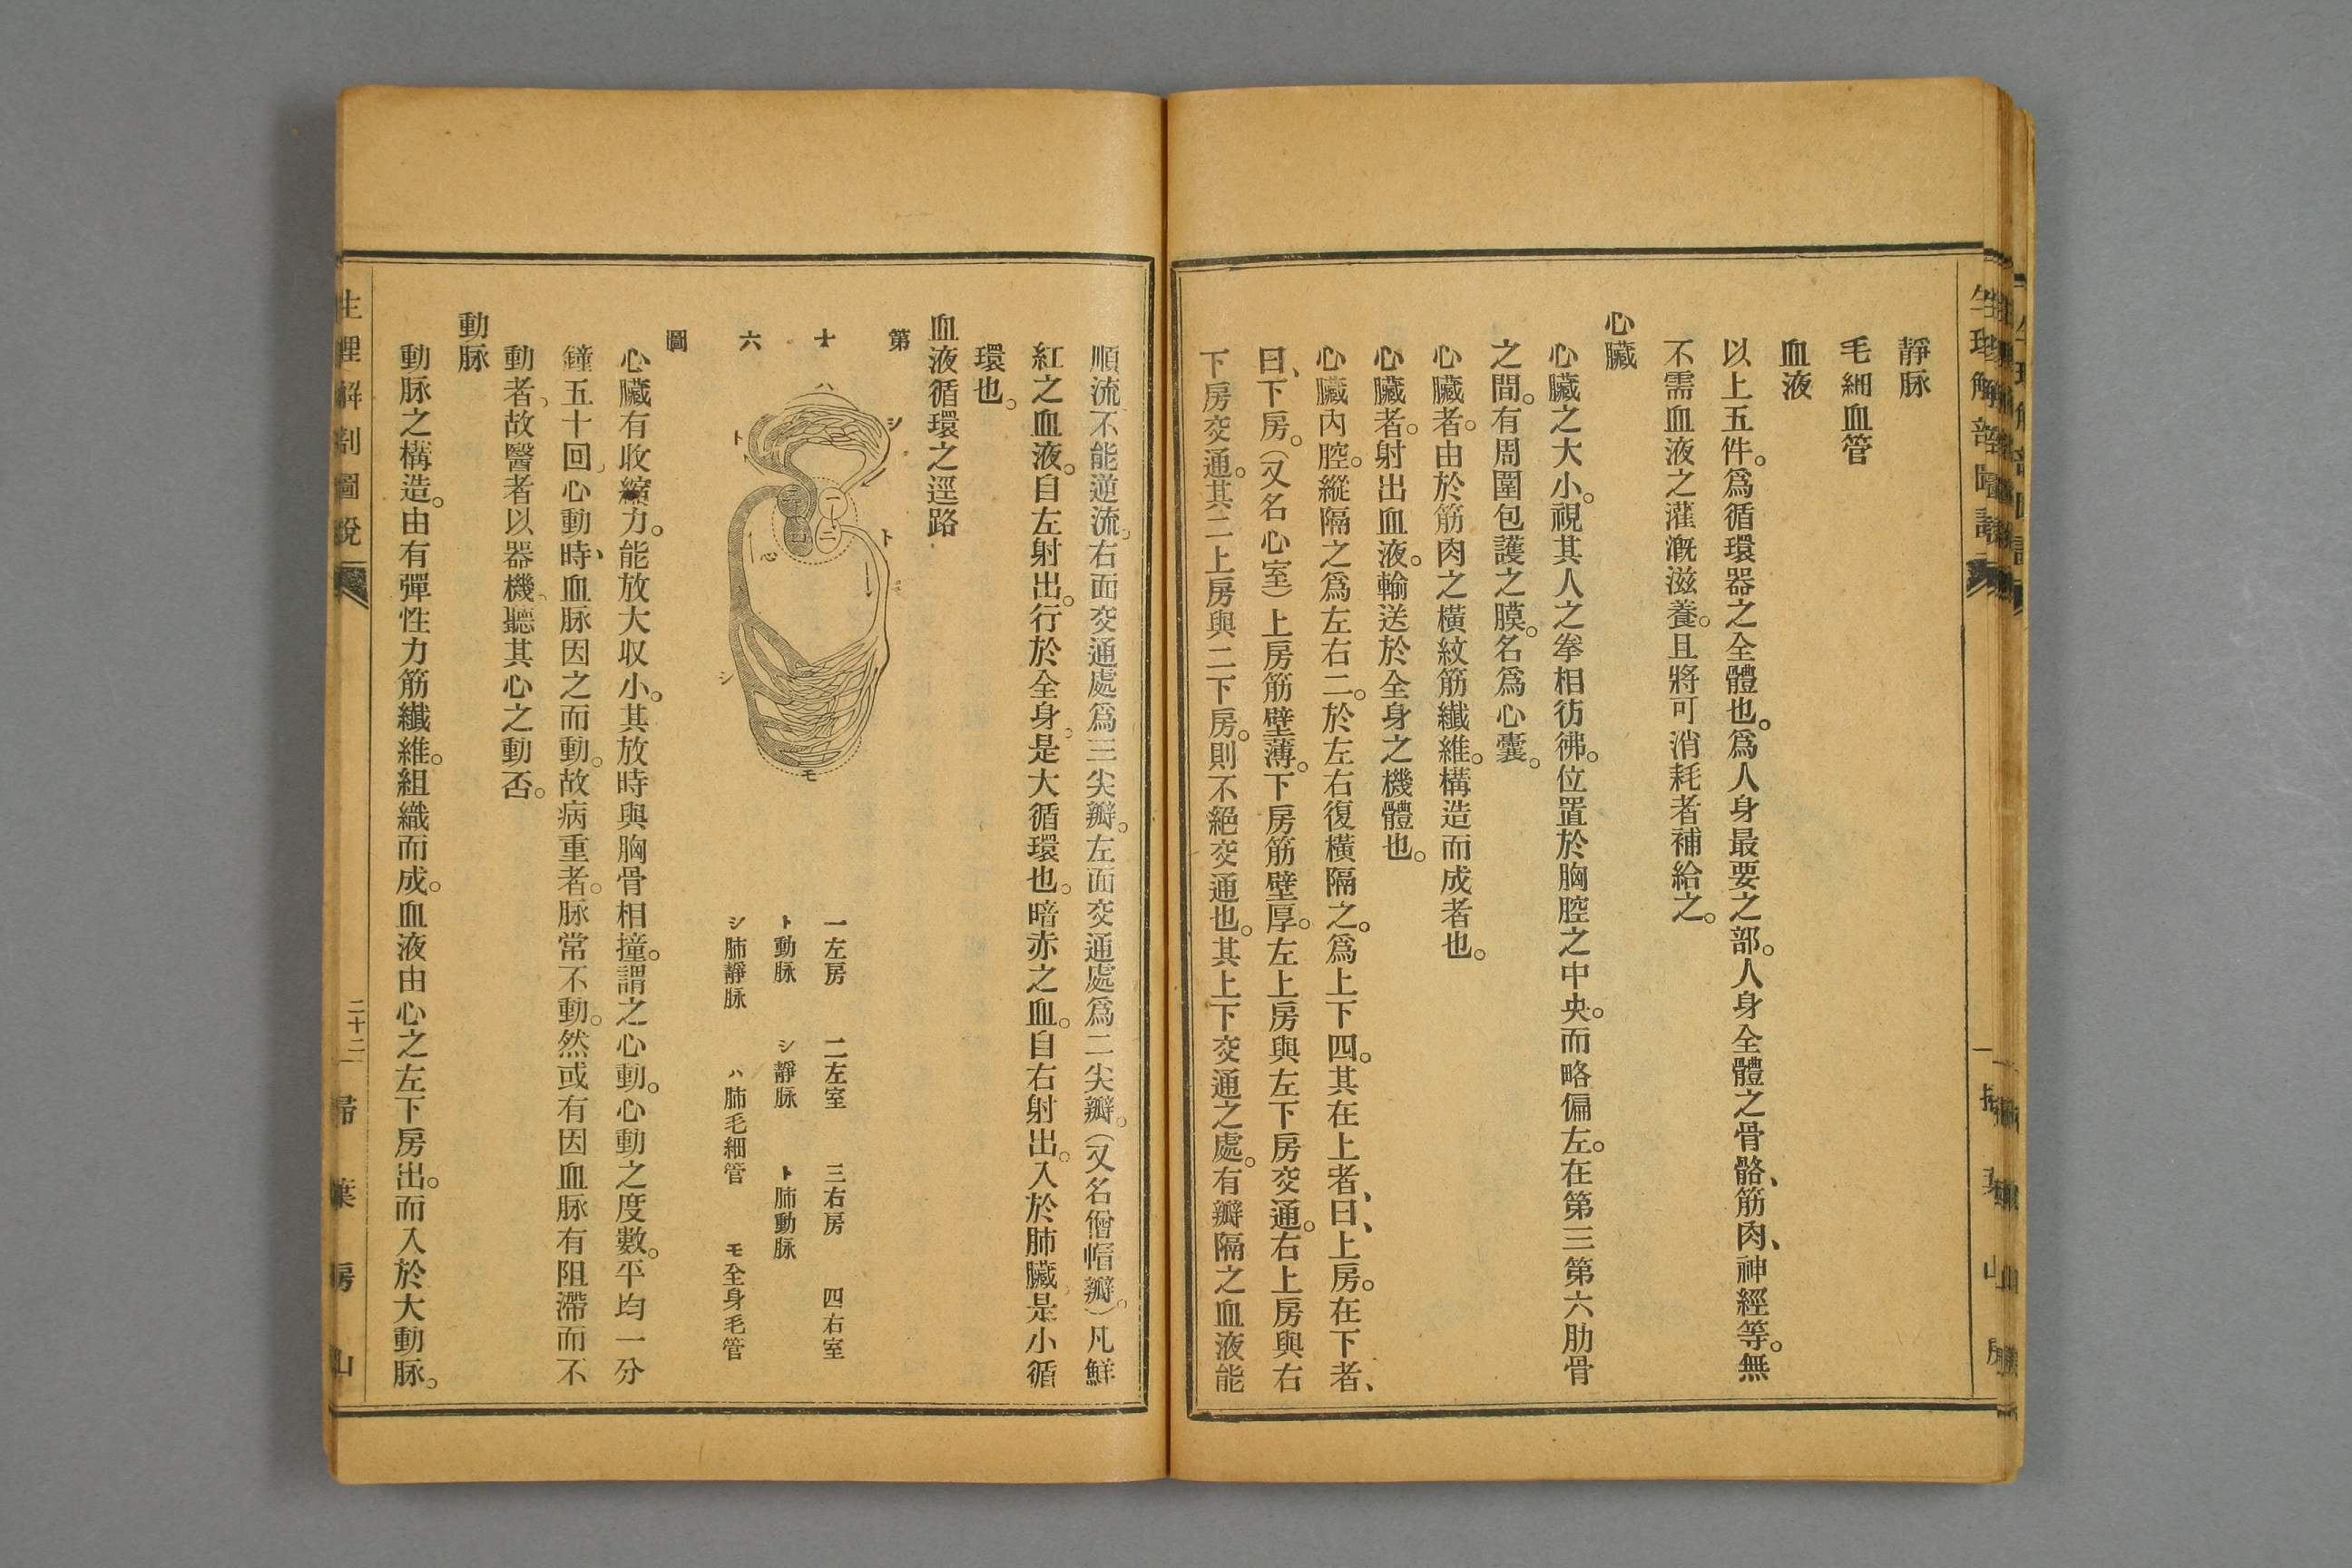 靜脉
毛細血管
血液
以上五件。爲循環器之全體也。爲人身最要之部。人身全體之骨骼、筋肉、神經等。無
不需血液之灌漑滋養。且將可消耗者補給之。
心臟
心臟之大小。視其人之拳相彷彿。位置於胸腔之中央。而略偏左。在第三第六肋骨
之間。有周圍包護之膜。名爲心囊。
心臟者。由於筋肉之橫紋筋纖維。構造而成者也。
心臟者。射出血液。輸送於全身之機體也。
心臟內腔。縱隔之爲左右二。於左右復橫隔之。爲上下四。其在上者、曰、上房。在下者、
曰、下房。(又名心室)上房筋壁薄。下房筋壁厚。左上房與左下房交通。右上房與右
下房交通。其二上房與二下房。則不絕交通也。其上下交通之處。有瓣隔之血液能
順流不能逆流。右面交通處爲三尖瓣。左面交通處爲二尖瓣。(又名僧帽瓣。)凡鮮
紅之血液。自左射出。行於全身。是大循環也。暗赤之血。自右射出。入於肺臟。是小循
環也。
血液循環之逕路
第十六圖
ハ
シ
ト
ト
一
二
三
四
心
シ
モ
一左房 二左室 三右房 四右室
ト動脉 シ靜脉 ト肺動脉
シ肺靜脉 ハ肺毛細管 モ全身毛管
心臟有收縮力。能放大収小。其放時與胸骨相撞。謂之心動。心動之度數。平均一分
鐘五十回。心動時、血脉因之而動。故病重者。脉常不動。然或有因血脉有阻滯而不
動者。故醫者以器機。聽其心之動否。
動脉
動脉之構造。由有彈性力筋纖維。組織而成。血液由心之左下房出。而入於大動脉。
生理解剖圖說
二十二
掃葉房山